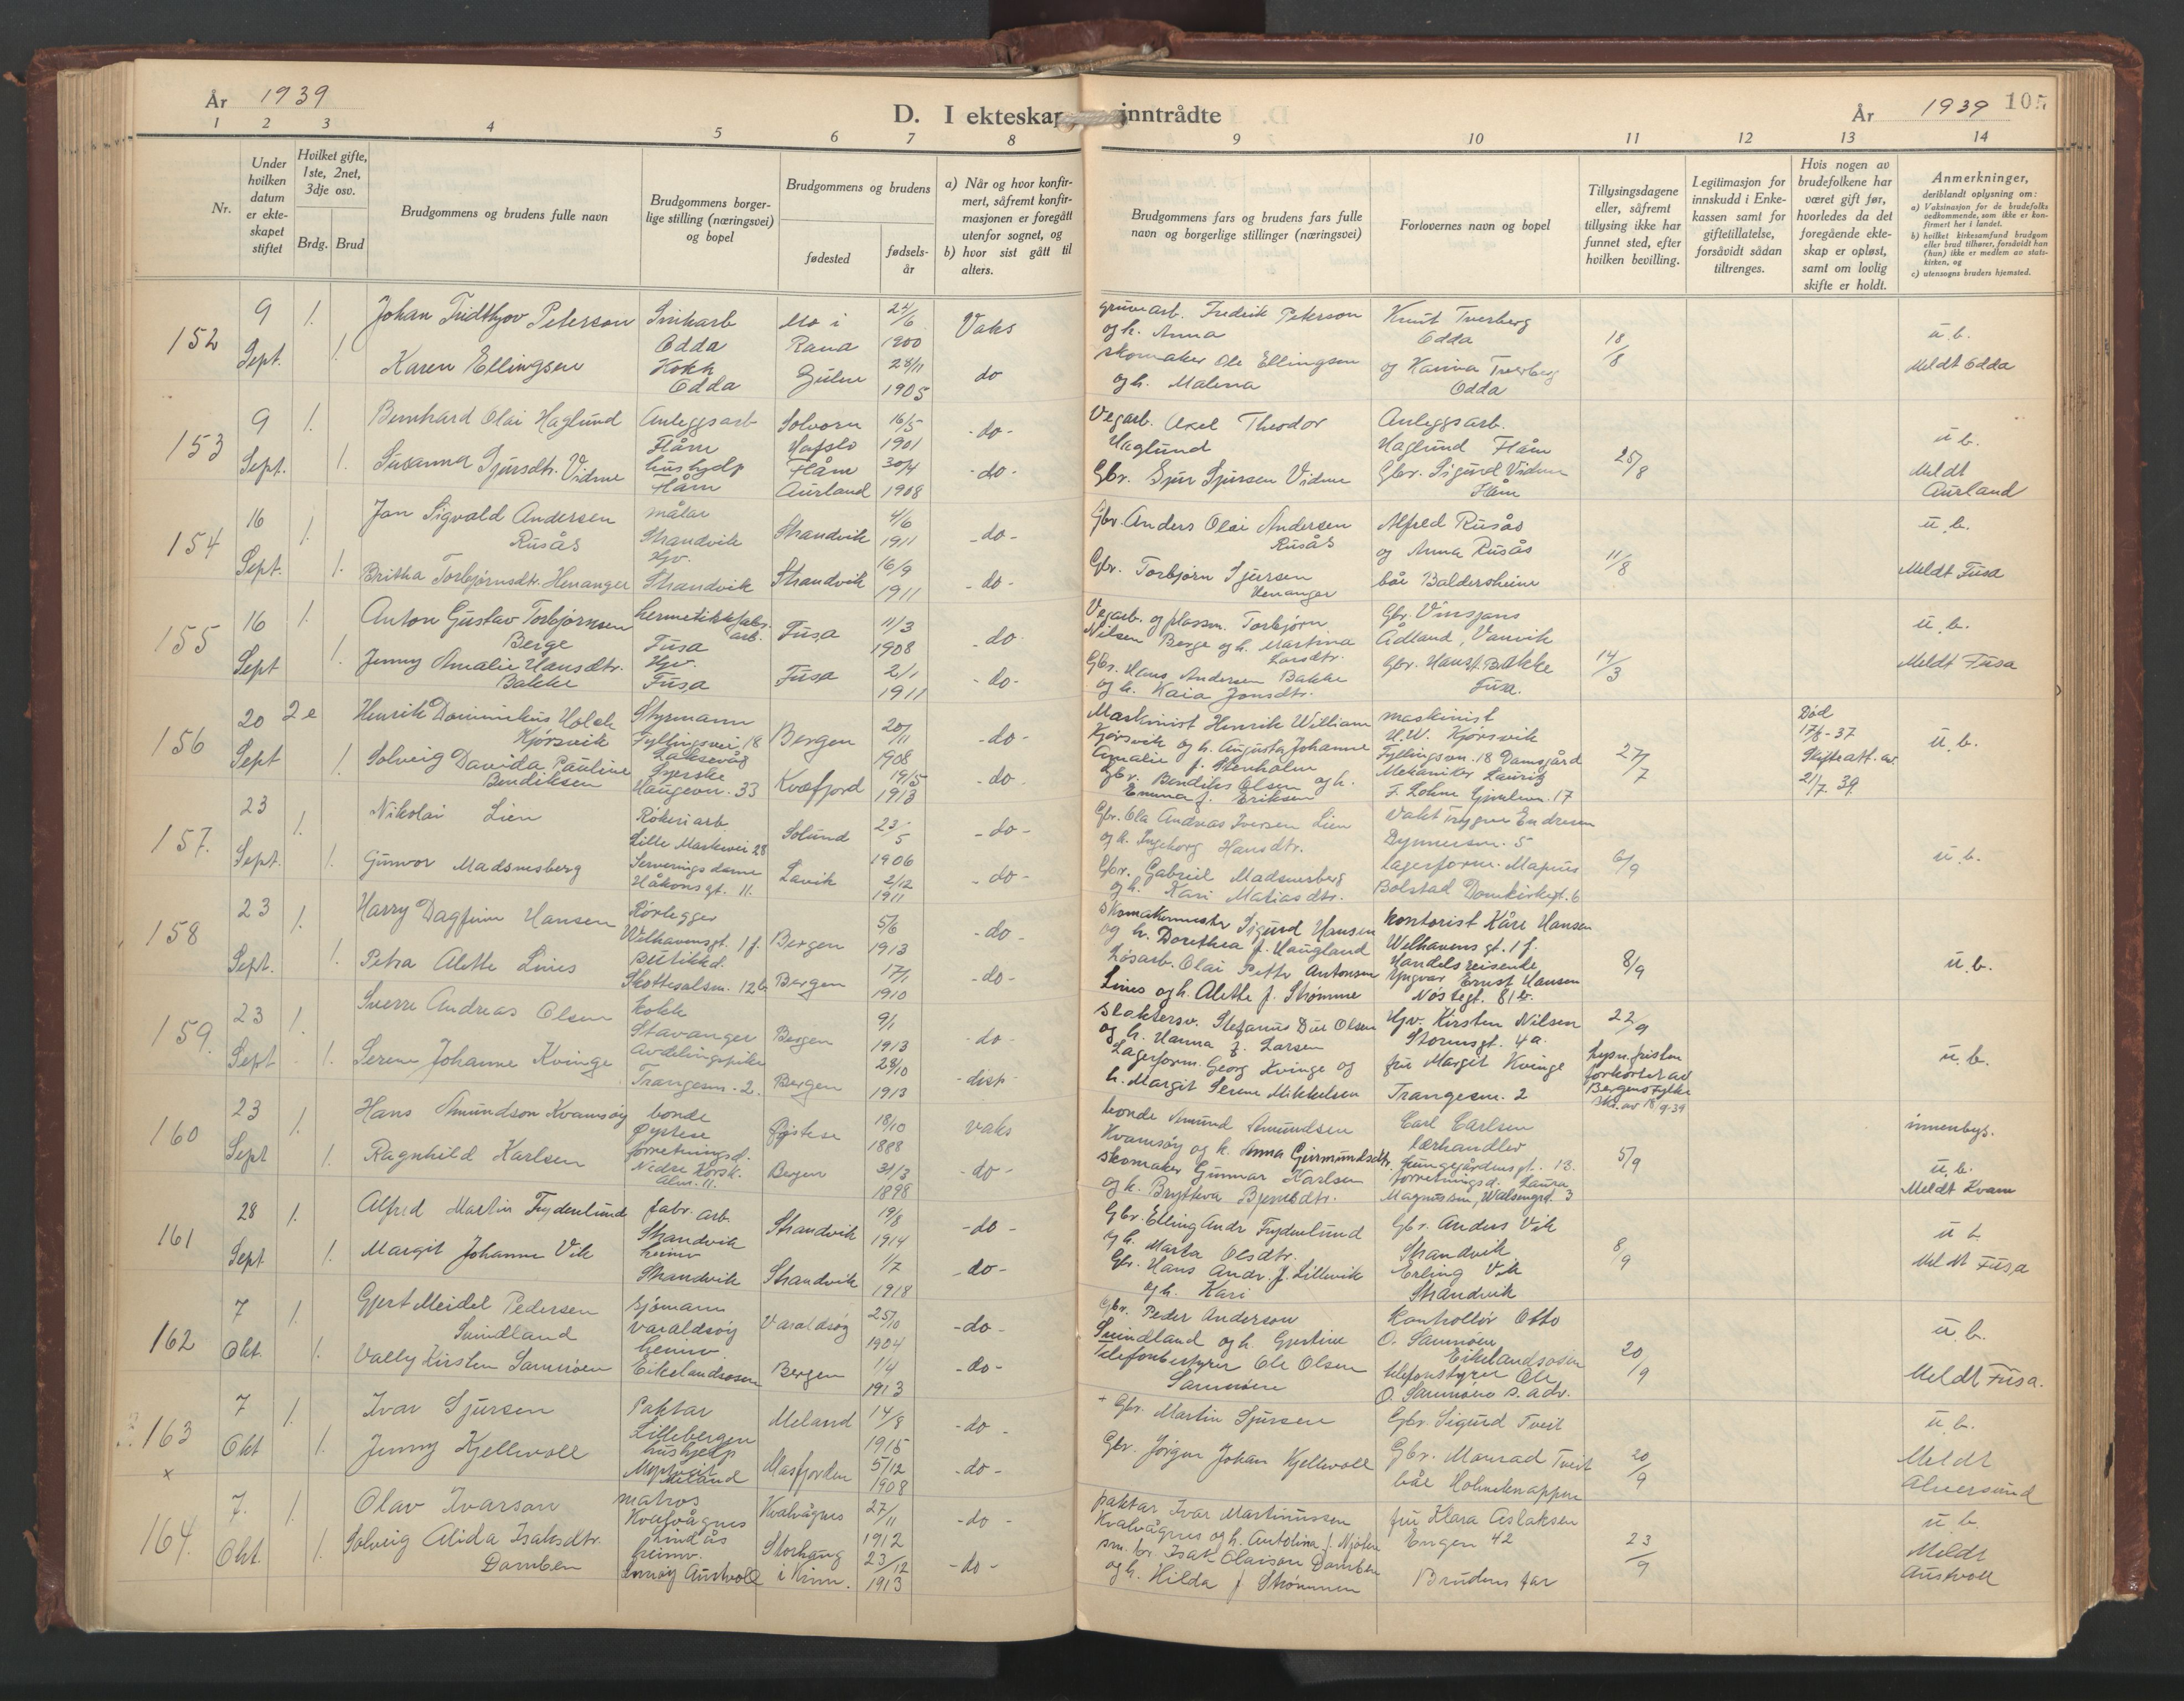 År 1939
D. I ekteskap inntrådte
År 1939
105
1 2 3 4 5 6 7 8 9 10 11 12 13 14
Nr.
Under hvilken datum er ekte-skapet stiftet
Hvilket gifte, 1ste, 2net, 3dje osv.
Brdg. Brud
Brudgommens og brudens fulle navn
Brudgommens borger-lige stilling (næringsvei) og bopel
Brudgommens og brudens
fødested
fødsels-år
a) Når og hvor konfir-mert, såfremt konfir-masjonen er foregått utenfor sognet, og
b) hvor sist gått til alters.
Brudgommens fars og brudens fars fulle navn og borgerlige stillinger (næringsvei)
Forlovernes navn og bopel
Tillysingsdagene eller, såfremt tillysing ikke har funnet sted, efter hvilken bevilling.
Legitimasjon for innskudd i Enke-kassen samt for giftetillatelse, forsåvidt sådan tiltrenges.
Hvis nogen av brudefolkene har været gift før, hvorledes da det foregående ekte-skap er opløst, samt om lovlig skifte er holdt.
Anmerkninger,
deriblandt oplysning om:
a) Vaksinasjon for de brudefolks vedkommende, som ikke er kon-firmert her i landet.
b) hvilket kirkesamfund brudgom eller brud tilhører, forsåvidt han (hun) ikke er medlem av stats-kirken, og
c) utensogns bruders hjemsted.
152
9 Sept.
1. 1.
Johan Fridthjov Peterson
Karen Ellingsen
Sinkarb Odda
Kokk Odda
Mo i Rana
24/6 1900
28/11 1905
Vaks
do
gruvearb. Fredrik Peterson
og h. Anna
skomaker Ole Ellingsen
og h. Malena
Knut Tverberg
Odda
og Karina Tverberg
Odda
18/8
u.b.
Meldt Odda
153
9 Sept.
1. 1.
Bernhard Olai Haglund
Susanna Sjursdtr. Vidme
Anleggsarb
Flåm
hushjelp
Flåm
Solvorn
Hafslo
Flåm
Aurland
16/5 1901
30/4 1908
- do -
- do -
Vegarb. Axel Theodor
Haglund
Gbr. Sjur Sjursen Vidme
Anleggsarb.
Haglund Flåm
Gbr. Sigurd Vidme
Flåm
25/8
u.b.
Meldt
Aurland
154
16 Sept.
1. 1.
Jan Sigvald Andersen
Rusås
Britha Torbjørnsdtr. Henanger
målar
Strandvik
Hjv.
Strandvik
Strandvik
Strandvik
4/6 1911
16/9 1911
- do -
- do -
Gbr. Anders Olai Andersen
Rusås
Gbr. Torbjørn Sjursen
Henanger
Alfred Rusås
og Anna Rusås
båe Baldersheim
11/8
u.b.
Meldt Fusa
155
16 Sept
1. 1.
Anton Gustav Torbjørnsen
Berge
Jenny Amalie Hansdtr.
Bakke
hermetikkfabr.
arb.
Fusa
Hjv.
Fusa
Fusa
Fusa
11/3 1908
2/1 1911
- do -
- do -
Vegarb. og plassm. Torbjørn
Nilsen Berge og h. Martina
Larsdtr.
Gbr. Hans Andersen Bakke
og h. Kaia Jonsdtr.
Gbr. Vinsjans
Ådland, Vanvik
Gbr. Hans T. Bakke
Fusa.
14/3
u.b.
Meldt Fusa
156
20 Sept
2e 1.
Henrik Dominikus Holck
Kjørsvik
Solveig Davida Pauline
Bendiksen
Styrmann
Fyllingsvei 18
Laksevåg
Syerske
Haugevn. 33
Bergen
Kvæfjord
20/11 1908
19/5 1913
- do -
- do -
Maskinist Henrik William
Kjørsvik og h. Augusta Johanne
Amalie f. Stenholm
Gbr. Bendiks Olsen og h.
Emma f. Eriksen
maskinist
H.W. Kjørsvik
Fyllingsvn. 18 Damsgård
Mekaniker Lauritz
27/7
Død
17/8-37
Skifteatt. av
21/7. 39.
u.b.
157.
23 Sept.
1. 1.
Nikolai Lien
Gunvor Madsnesberg
Røkeriarb.
Lille Markevei 28
Serveringsdame
Håkonsgt. 11.
Solund
Lavik
23/5 1906
2/12 1911
- do -
- do -
Gbr. Ola Andreas Iversen Lien
og h. Ingeborg Hansdtr.
Gbr. Gabriel Madsnesberg
og h. Kari Matiasdtr.
Vakt Trygve Endresen
lagerform. Magnus
Bolstad Domkirkegt. 6
6/9
u.b.
158
23 Sept.
1. 1.
Harry Dagfinn Hansen
Petra Alette Lines
Rørlegger
Welhavensgt. 1 f.
butikkd.
Skottesalsm. 12b
Bergen
Bergen
5/6 1913
17/1 1910
- do -
- do -
Skomakermester Sigurd Hansen
og h. Dorethea f. Haugland
Løsarb. Olai Petter Antonsen
Lines og h. Alette f. Strømme
kontorist Kåre Hansen
Welhavensgt. 1 f.
Handelsreisende
Yngvar Ernst Hansen
Nøstegt. 81b.
8/9
u.b.
159.
23 Sept
1. 1.
Sverre Andreas Olsen
Serene Johanne Kvinge
Kokk
Stavanger
Avdelingspike
Trangesm. 2.
Bergen
Bergen
9/1 1913
28/10 1913
- do -
- disp -
Slaktersv. Stefanus Due Olsen
og h. Hanna f. Larsen
Lagerform. Georg Kvinge og
h. Margit Serene Mikkelsen
Hjv. Kirsten Nilsen
Storemsgt. 4a.
fru Margit Kvinge
Trangesm. 2
22/9
lysn.fristen
forkortet av
Bergens Fylke
skr. av 18/9-39
u.b.
160
23 Sept
1. 1.
Hans Amundson Kvamsøy
Ragnhild Karlsen
bonde
Øystese
forretningsd.
Nedre Korsk.
Alm. 11.
Øystese
Bergen
18/10 1888
31/3 1898
vaks
- do -
bonde Amund Amundsen
Kvamsøy og h. Anna Geirmundsdtr.
skomaker Gunnar Karlsen
Carl Carlsen
lærhandler
Lungegårdensgt. 13.
forretningsd. Laura
5/9
innenbys.
u.b.
Meldt Kvam
161
28 Sept
1. 1.
Alfred Martin Frydenlund
Margit Johanne Vik
fabr. arb.
Strandvik
heimv
Strandvik
Strandvik
Strandvik
19/8 1914
1/7 1918
- do -
- do -
Gbr. Elling Andr Frydenlund
og h. Marta Olsdtr.
Gbr. Hans Andr. f. Lillevik
og h. Kari
Gbr. Anders Vik
Strandvik
Erling Vik
Strandvik
8/9
u.b.
Meldt Fusa
162
7 Okt.
1. 1.
Gjert Meidel Pedersen
Suindland
Vally Kirsten Samnøen
sjømann
Varaldsøy
heimv.
Eikelandsosen
Varaldsøy
Bergen
25/10 1904
1/4 1913
- do -
- do -
Gbr. Peder Anderson
Suindland og h. Gjertine
Telefonbestyrer Ole Olsen
Samnøen
Kontrollør Otto
O. Samnøen
Eikelandsosen
telefonstyrer Ole
O. Samnøen s. adr.
20/9
u.b.
Meldt Fusa.
163
x
7 Okt
1. 1.
Ivar Sjursen
Jenny Kjellevoll
Paktar
Lillebergen
hushjelp
Meland
Meland
Masfjorden
14/8 1915
5/12 1908
- do -
- do -
+ Gbr. Martin Sjursen
Gbr. Jørgen Johan Kjellevoll
Gbr. Sigurd Tveit
Gbr. Monrad Tveit
båe Holmeknappen
20/9
u.b.
Meldt
Alversund
164.
7. Okt.
1. 1.
Olav Ivarson
Solveig Alida Isaksdtr.
Domben
matros
Kvalvågnes
Lindås
heimv.
Austvoll
Kvalvågnes
Storhaug
i Kinn.
27/11 1912
23/12 1913
- do -
- do -
paktar Ivar Martinussen
Kvalvågnes og h. Antolina f. Mjøs
Isak Olaison Domben
og h. Hilda f Strømmen
fru Klara Aslaksen
Engen 42
Brudens far
23/9
u.b.
Meldt
Austvoll